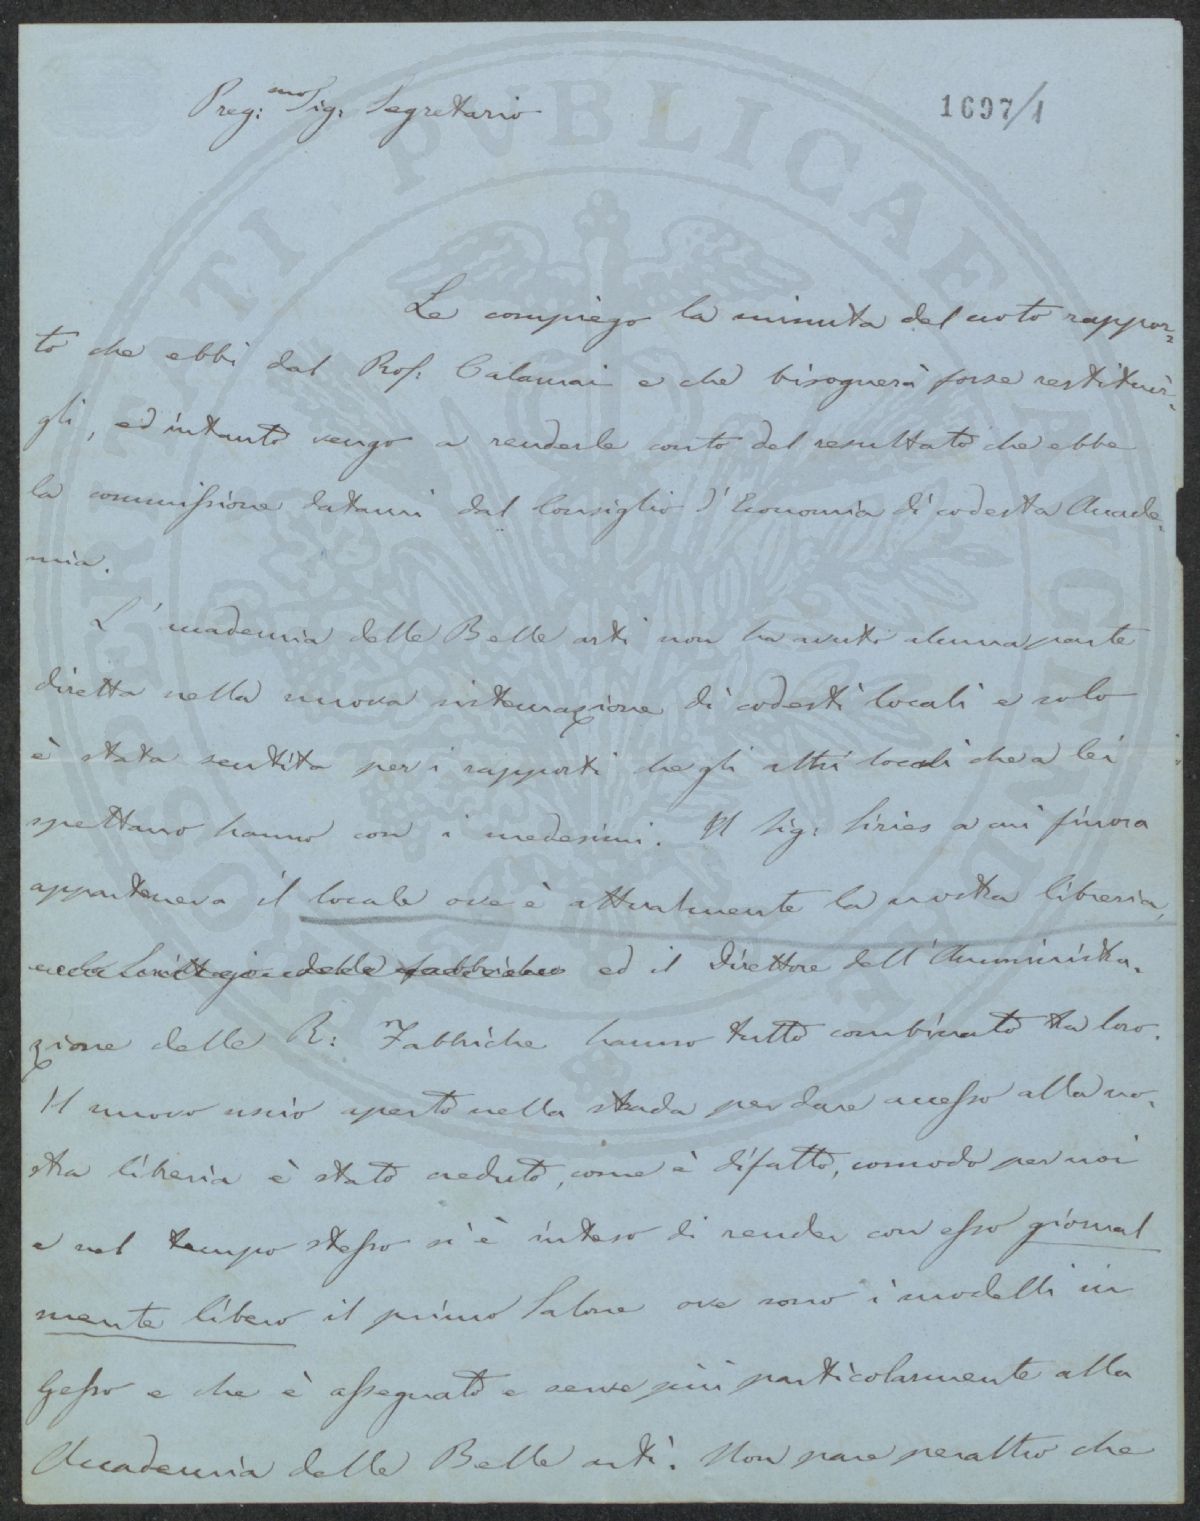 Preg:mo Sig: Segretario
1697/1
Le compiego la minuta del noto rappor=
to che ebbi dal Prof: Calamai e che bisognerà forse restituir=
gli, ed intanto vengo a renderle conto del resultato che ebbe
la commissione datami dal Consiglio d'Economia di codesta Accade=
mia.
L'accademia delle Belle arti non ha avuti alcuna parte
diretta nella nuova sistemazione di codesti locali e solo
è stata sentita per i rapporti che gli altri locali che a lei
spettano hanno con i medesimi. Il Sig: Siries a cui finora
apparteneva il locale ove è attualmente la nostra libreria,
ed il Direttore dell'Amministra=
zione delle R: Fabbriche hanno tutto combinato tra loro.
Il nuovo uscio aperto nella strada per dare accesso alla no=
stra libreria è stato creduto, come è difatto, comodo per noi
e nel tempo stesso si è inteso di render con esso giornal
mente libero il primo Salone ove sono i modelli in
Gesso e che è assegnato e serve più particolarmente alla
Accademia delle Belle arti. Non pare peraltro che
PROSPERITATI PVBLICAE AVGENDAE